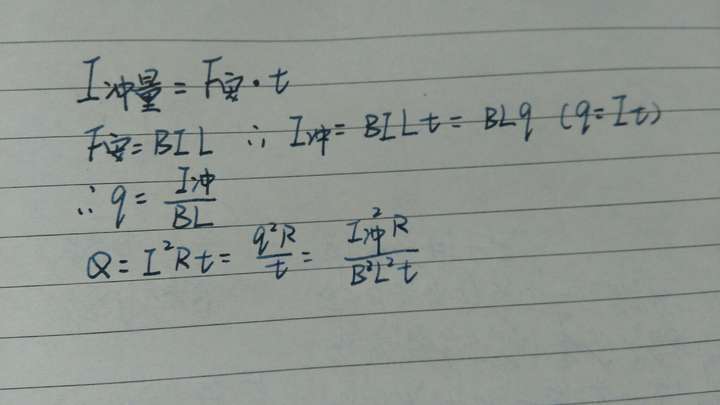 I冲量 = F安·t
F安 = BIL ∴ I冲 = BILt = BLq (q=It)
∴ q = I冲/BL
Q = I²Rt = q²R/t = I冲²R/B²L²t